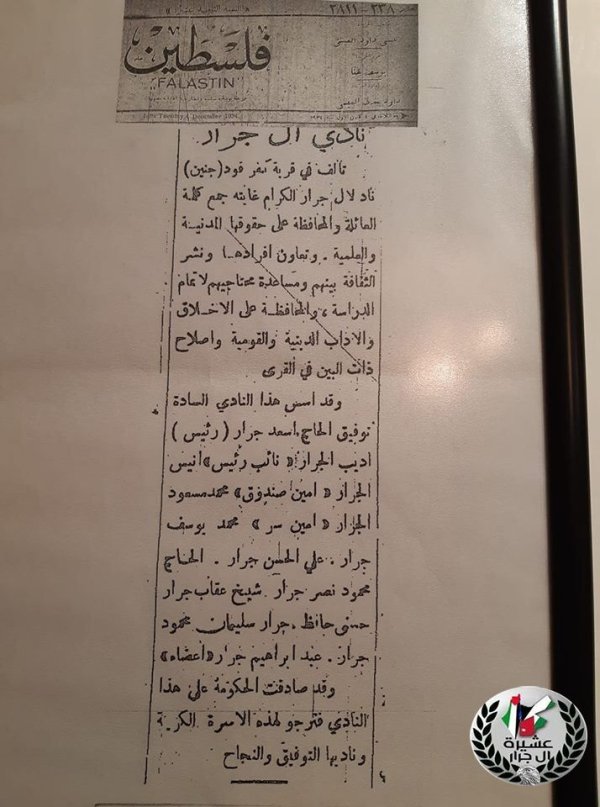 ٣٣٨ - ٣٨١١
عيسى داود العيسى
يوسف حنا
فلسطين
"FALASTIN"
نادي آل جرار
تألف في قرية كفر قود (جنين)
ناد لال جرار الكرام غايته جمع كلمة
العائلة والمحافظة على حقوقها المدنية
والعلمية . وتعاون افرادها ونشر
الثقافة بينهم ومساعدة محتاجيهم لاتمام
الدراسة ، والمحافظة على الاخلاق
والاداب الدينية والقومية واصلاح
ذات البين في القرى
وقد اسس هذا النادي السادة
توفيق الحاج اسعد جرار ( رئيس )
اديب الجرار « نائب رئيس » انيس
الجرار « امين صندوق » محمد مسعود
الجرار « امين سر » محمد يوسف
جرار . علي الحسن جرار . الحاج
محمود نصر جرار . شيخ عقاب جرار
حسني حافظ . جرار سليمان محمود
جرار . عبد ابراهيم جرار « اعضاء »
وقد صادقت الحكومة على هذا
النادي فنرجو لهذه الاسرة الكريمة
وناديها التوفيق والنجاح
عشيرة
ال جرار